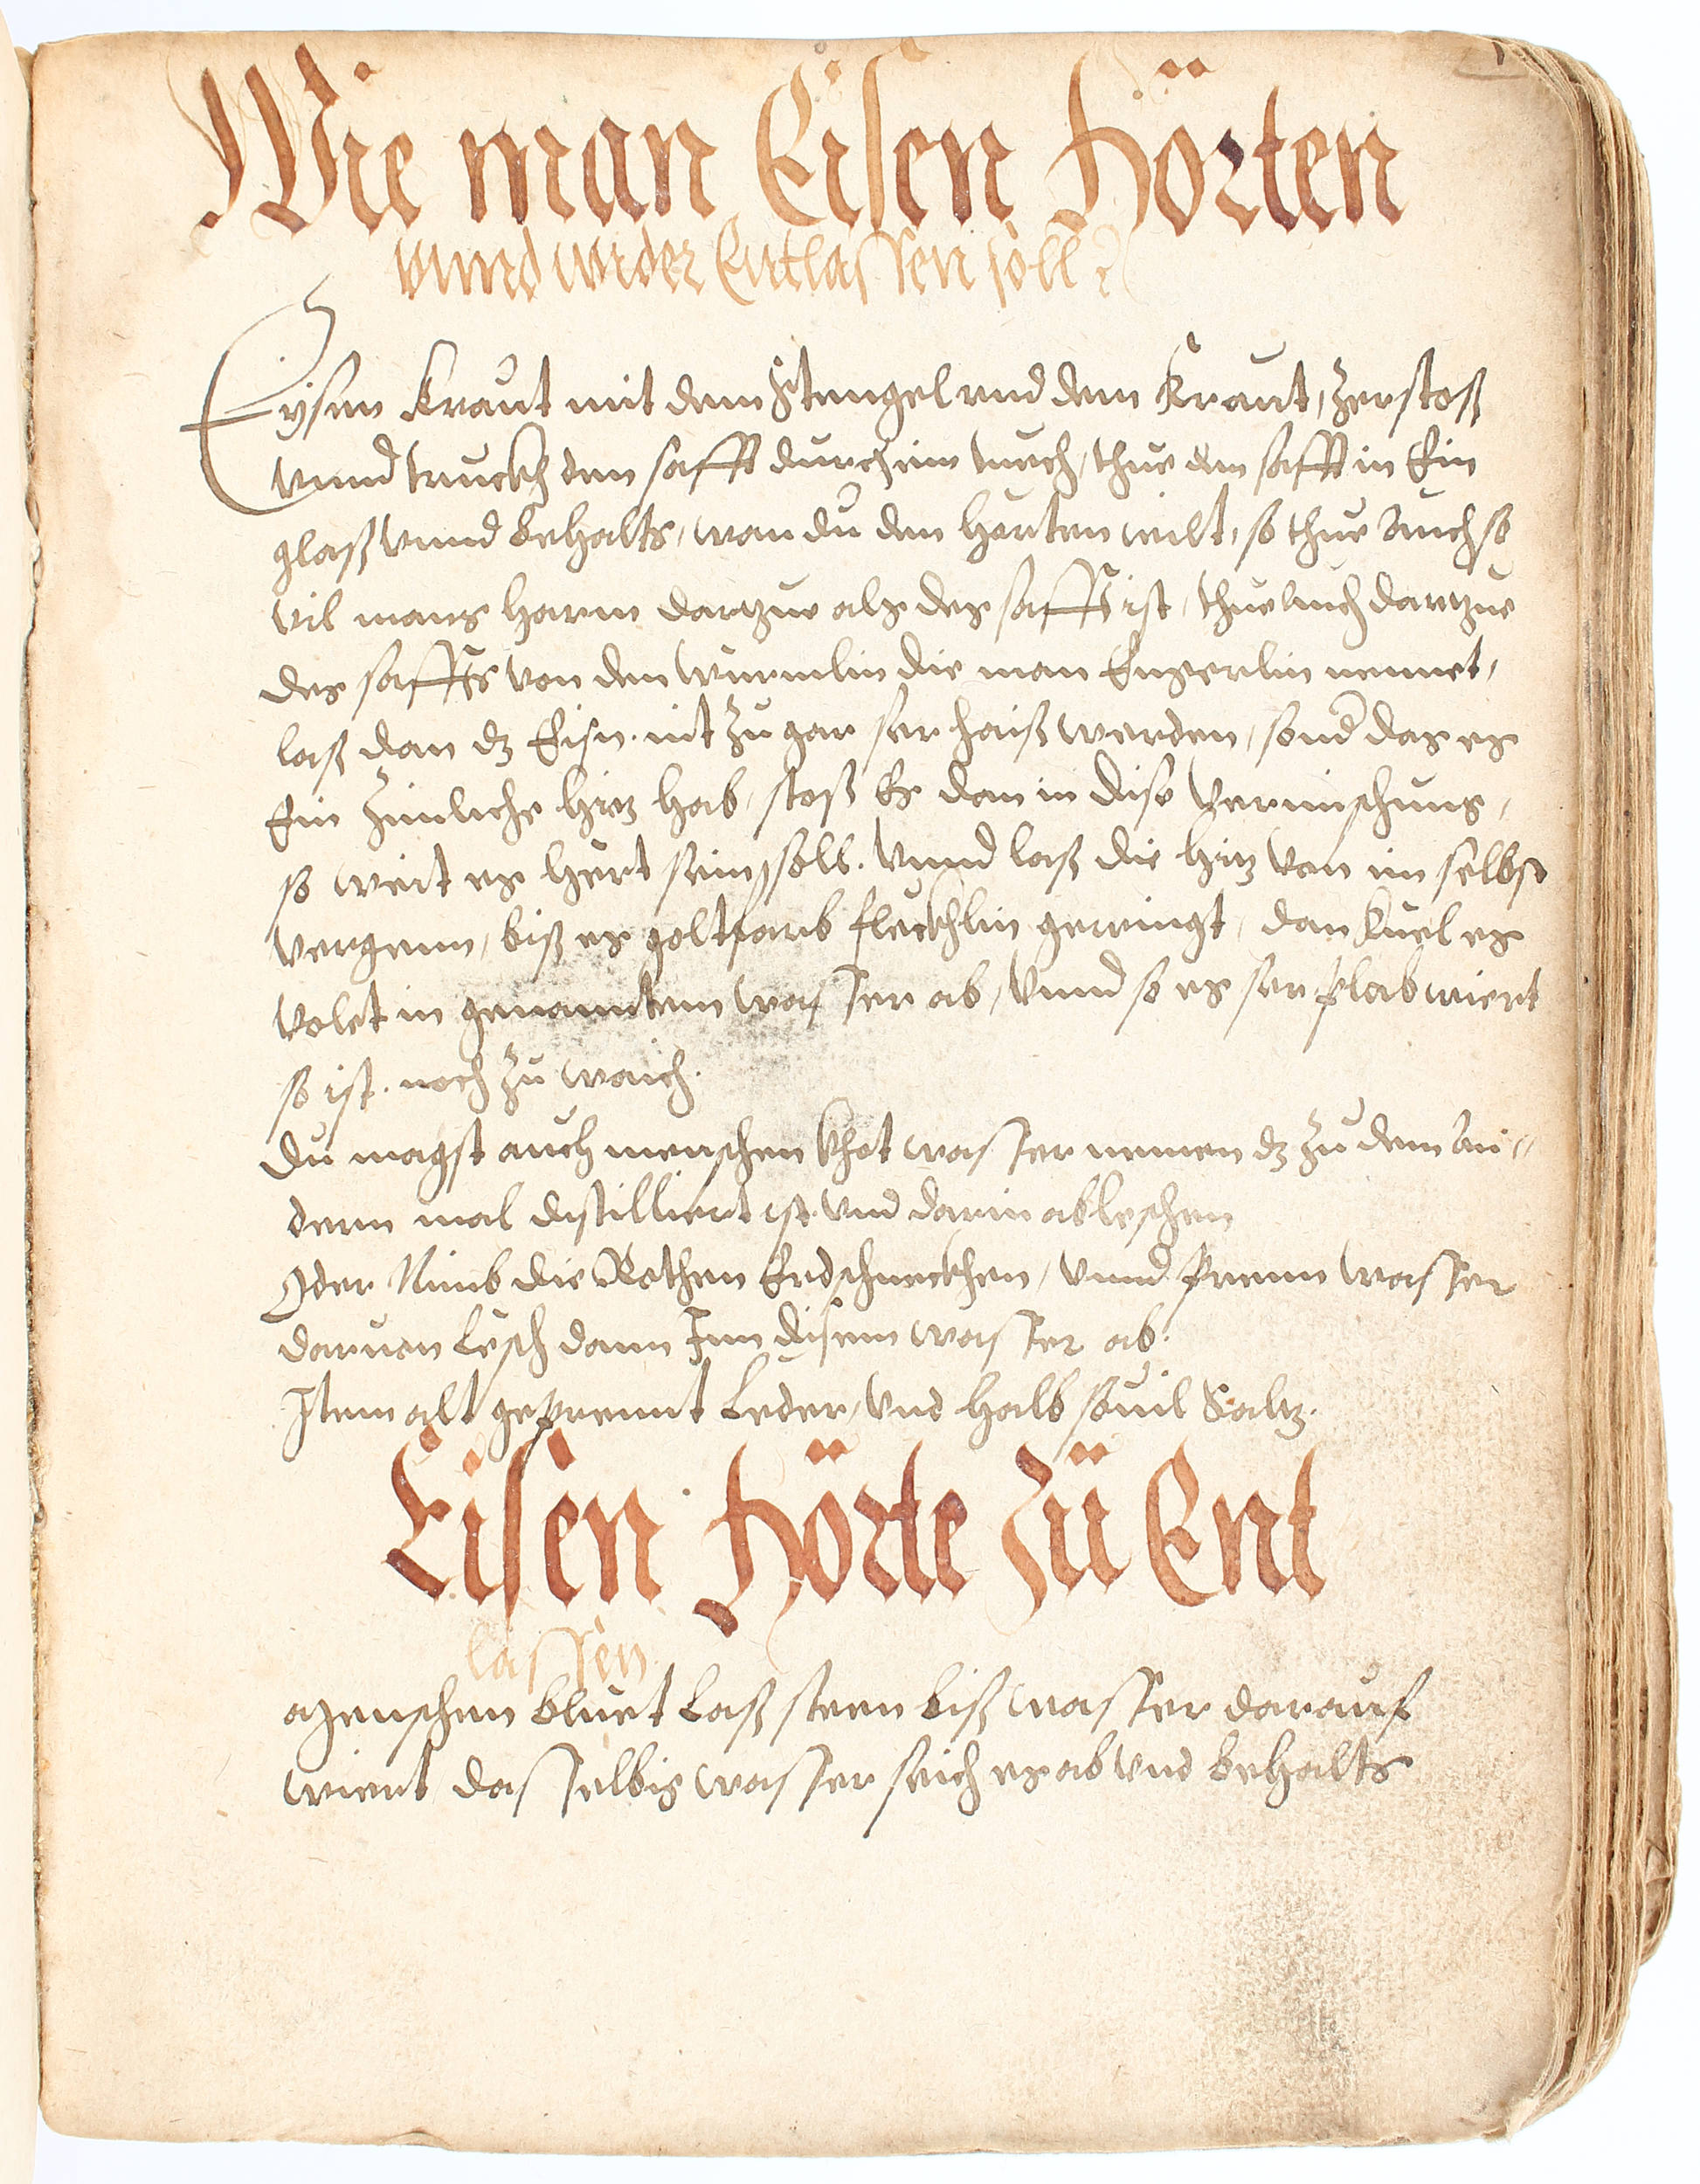 Wie man Eisen Hörten
vnnd wider Entlassen soll?
Eysen Kraut mit dem Stengel vnd dem Kraut, zerstoß
vnnd truckh den safft durch ein tuech, thue den safft in Ein
glaß vnnd behalts, wan du den herten wilt, so thue Auch so
vil mans harm dartzue als des saffts ist, thue auch dartzue
des saffts von den würmlin die man Engerlin nennet,
laß dan dz Eisn. nit zu gar ser haiß werden, sond das es
Ein zimliche hitz hab, stoß Es dan in dise Vermischung,
so weit es hert sein soll. Vnnd laß die hitz von im selbst
vergenn, biß es goltfarb fleckhlin gewingt, dan kuel es
volet in genanntem wasser ab, Vnnd so es ser plab wiert
so ist. noch zu waich.
Du magst auch menschen khot wasser nemen dz zu dem An⸗
dern mal distilliert ist. vnd darin ableschen
Oder Nimb die Rothen Erdschneckhen, Vnnd prenn wasser
daruon Lesch dann Inn disem wasser ab.
Item alt geprennt Leder, Vnd halb souil Saltz.
Eisen Hörte Zü Ent
lassen
Menschen bluet Laß steen biß wasser darauf
wiert dasselbig wasser seich es ab vnd behalts